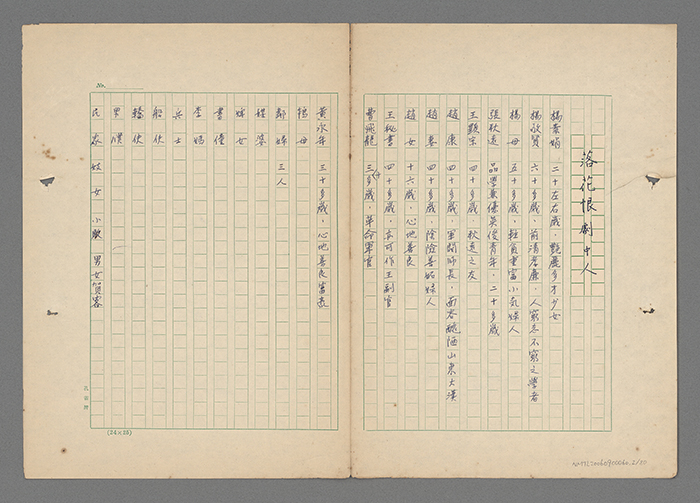 落花恨劇中人
楊素娟 二十左右歲，艷麗多才少女
楊啟賢 六十多歲，前清孝廉，人窮志不窮之學者
楊母 五十多歲，輕貧重富小氣婦人
張秋遠 品學兼優英俊青年，二十多歲
王顯宗 四十多歲，秋遠之友
趙康 四十多歲，軍閥師長，面容醜陋山東大漢
趙妻 四十多歲，陰險善妒婦人
趙女 十六歲，心地善良
王秘書 四十多歲，亦可作王副官
曹飛龍 三十多歲，革命軍官
黃永年 三十多歲，心地善良富商
楊母
鄰婦 三人
程婆
婢女
書僮
李媽
兵士
船伕
轎伕
男僕
民眾 妓女 小販 男女賀客
No.
(24×25)